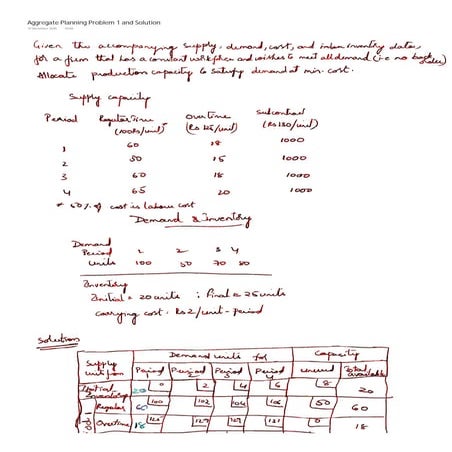 Aggregate Planning Problem 1 and Solution
Given the accompanying supply, demand, cost, and inventory data
for a firm that has a constant workforce and wishes to meet all demand (i.e no back orders)
Allocate production capacity to satisfy demand at min. cost.
Supply capacity
Period Regular Time (100Rs/unit) Overtime (Rs 125/unit) Subcontract (Rs 130/unit)
1 60 18 1000
2 50 15 1000
3 60 18 1000
4 65 20 1000
* 50% of cost is labour cost
Demand & Inventory
Demand
Period 1 2 3 4
Units 100 50 70 80
Inventory
Initial = 20 units ; Final = 25 units
Carrying cost: Rs 2/unit-period
Solution
Demand units for Capacity
Supply units from Period 1 Period 2 Period 3 Period 4 unused Total available
Initial Inventory 20 0 2 4 6 8 20
1 Regular 60 100 102 104 106 50 60
Overtime 18 125 127 129 131 0 18